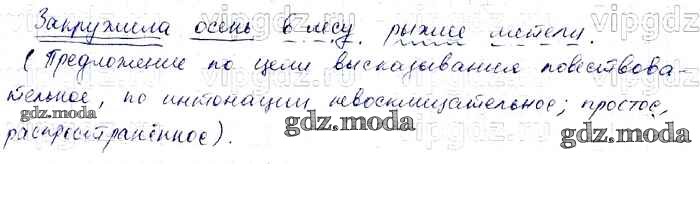 Закружила осень в лесу рыжие метели.
(Предложение по цели высказывания повествова-
тельное, по интонации невосклицательное; простое,
распространённое).
gdz.moda
gdz.moda
gdz.moda